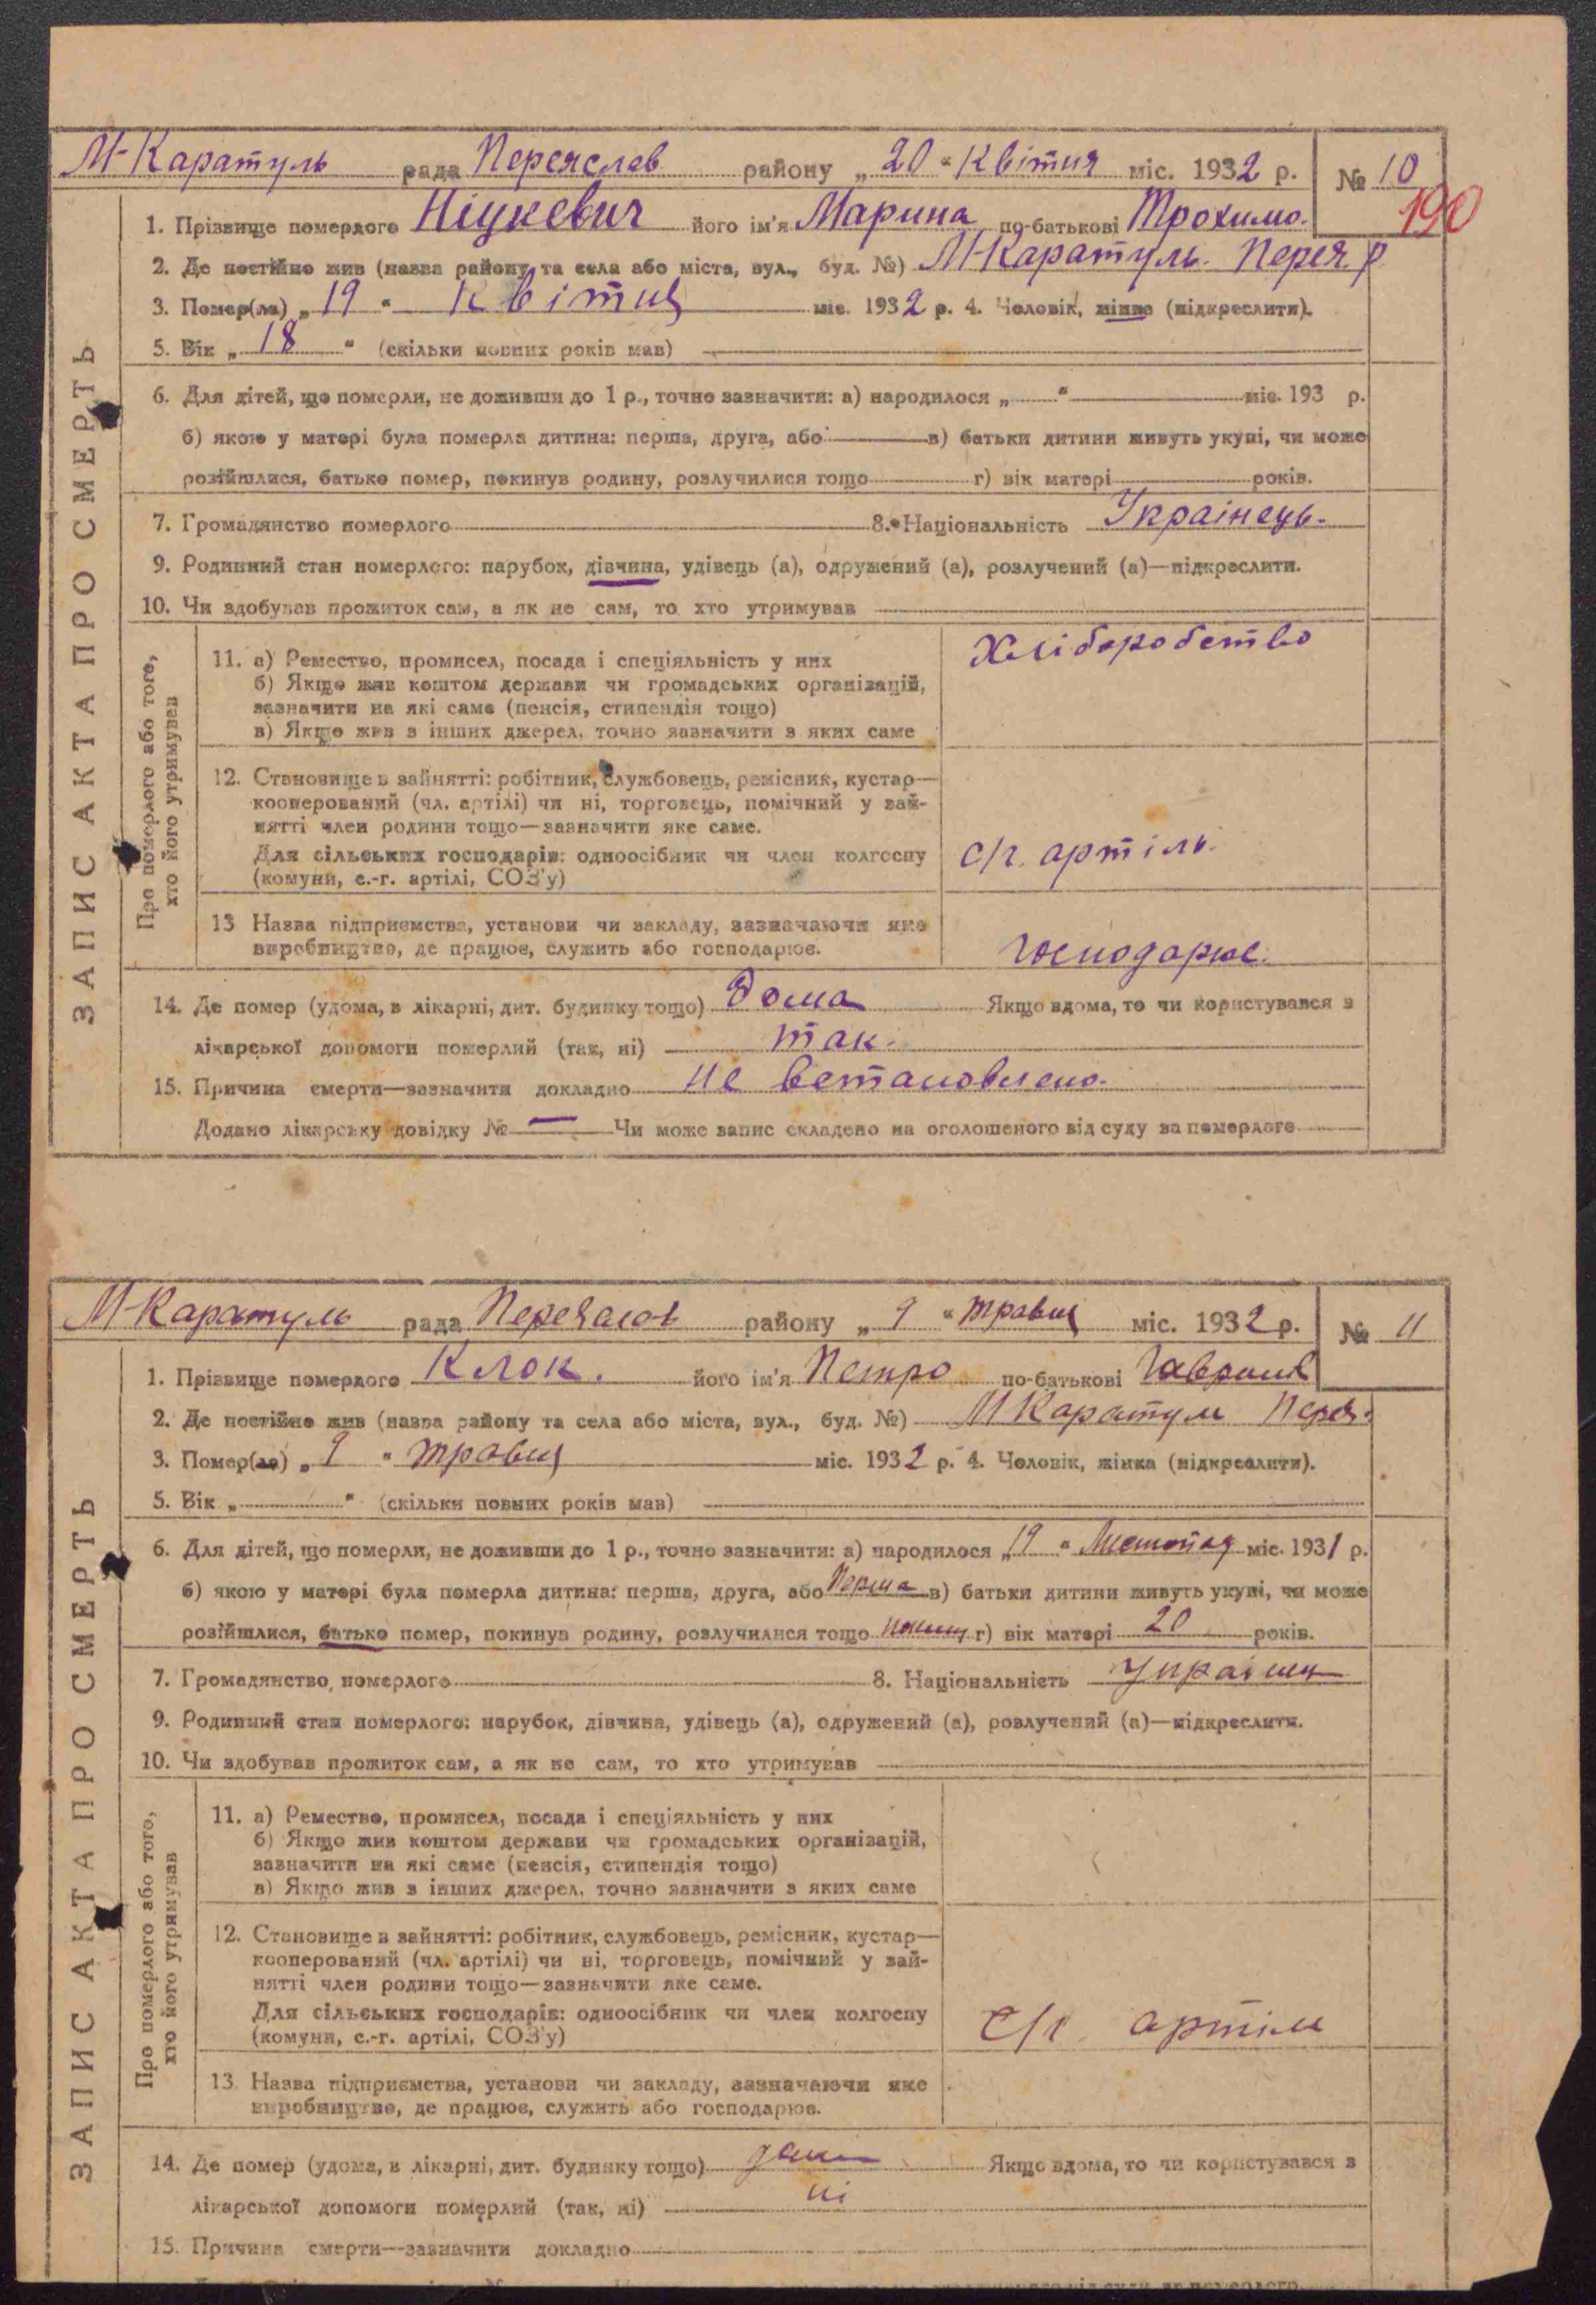 М-Каратуль рада Переяслав району „ 20 “ Квітня міс. 1932 р. № 10
190
1. Прізвище померлого Ніцкевич його ім'я Марина по-батькові Трохимо.
2. Де постійно жив (назва району та села або міста, вул., буд. №) М-Каратуль. Перея р
3. Помер(ла) „ 19 “ Квітня міс. 1932 р. 4. Чоловік, жінка (підкреслити).
5. Вік „ 18 “ (скільки повних років мав)
6. Для дітей, що померли, не доживши до 1 р., точно зазначити: а) народилося „ “ міс. 193 р.
б) якою у матері була померла дитина: перша, друга, або в) батьки дитини живуть укупі, чи може
розійшлися, батько помер, покинув родину, розлучилися тощо г) вік матері років.
7. Громадянство померлого 8. Національність Українець.
9. Родинний стан померлого: парубок, дівчина, удівець (а), одружений (а), розлучений (а)—підкреслити.
10. Чи здобував прожиток сам, а як не сам, то хто утримував
ЗАПИС АКТА ПРО СМЕРТЬ
Про померлого або того,
хто його утримував
11. а) Ремество, промисел, посада і спеціяльність у них Хліборобство
б) Якщо жив коштом держави чи громадських організацій,
зазначити на які саме (пенсія, стипендія тощо)
в) Якщо жив з інших джерел, точно зазначити з яких саме
12. Становище в зайнятті: робітник, службовець, ремісник, кустар—
кооперований (чл. артілі) чи ні, торговець, помічний у зай-
нятті член родини тощо—зазначити яке саме.
Для сільських господарів: одноосібник чи член колгоспу с/г. артіль.
(комуни, с.-г. артілі, СОЗ'у)
13 Назва підприємства, установи чи закладу, зазначаючи яке
виробництво, де працює, служить або господарює. господарює.
14. Де помер (удома, в лікарні, дит. будинку тощо) Дома Якщо вдома, то чи користувався з
лікарської допомоги померлий (так, ні) так.
15. Причина смерти—зазначити докладно не встановлено.
Додано лікарську довідку № — Чи може запис складено на оголошеного від суду за померлого
М-Каратуль рада Переяслов району „ 9 “ травня міс. 1932 р. № 11
1. Прізвище померлого Клок. його ім'я Петро по-батькові
2. Де постійно жив (назва району та села або міста, вул., буд. №) М Каратуль Перея.
3. Помер(ла) „ 9 “ травня міс. 1932 р. 4. Чоловік, жінка (підкреслити).
5. Вік „ “ (скільки повних років мав)
6. Для дітей, що померли, не доживши до 1 р., точно зазначити: а) народилося „ 19 “ Листопад міс. 1931 р.
б) якою у матері була померла дитина: перша, друга, або Перша в) батьки дитини живуть укупі, чи може
розійшлися, батько помер, покинув родину, розлучилися тощо г) вік матері 20 років.
7. Громадянство померлого 8. Національність
9. Родинний стан померлого: парубок, дівчина, удівець (а), одружений (а), розлучений (а)—підкреслити.
10. Чи здобував прожиток сам, а як не сам, то хто утримував
ЗАПИС АКТА ПРО СМЕРТЬ
Про померлого або того,
хто його утримував
11. а) Ремество, промисел, посада і спеціяльність у них
б) Якщо жив коштом держави чи громадських організацій,
зазначити на які саме (пенсія, стипендія тощо)
в) Якщо жив з інших джерел, точно зазначити з яких саме
12. Становище в зайнятті: робітник, службовець, ремісник, кустар—
кооперований (чл. артілі) чи ні, торговець, помічний у зай-
нятті член родини тощо—зазначити яке саме.
Для сільських господарів: одноосібник чи член колгоспу
(комуни, с.-г. артілі, СОЗ'у) с/г. артіль
13. Назва підприємства, установи чи закладу, зазначаючи яке
виробництво, де працює, служить або господарює.
14. Де помер (удома, в лікарні, дит. будинку тощо) Якщо вдома, то чи користувався з
лікарської допомоги померлий (так, ні) ні
15. Причина смерти—зазначити докладно